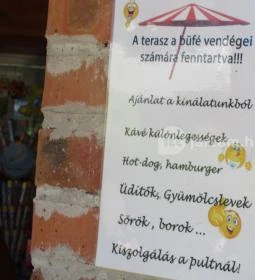 A terasz a büfé vendégei
számára fenntartva!!!
Ajánlat a kínálatunkból
Kávé különlegességek
Hot-dog, hamburger
Üdítők, Gyümölcslevek
Sörök, borok ...
Kiszolgálás a pultnál!